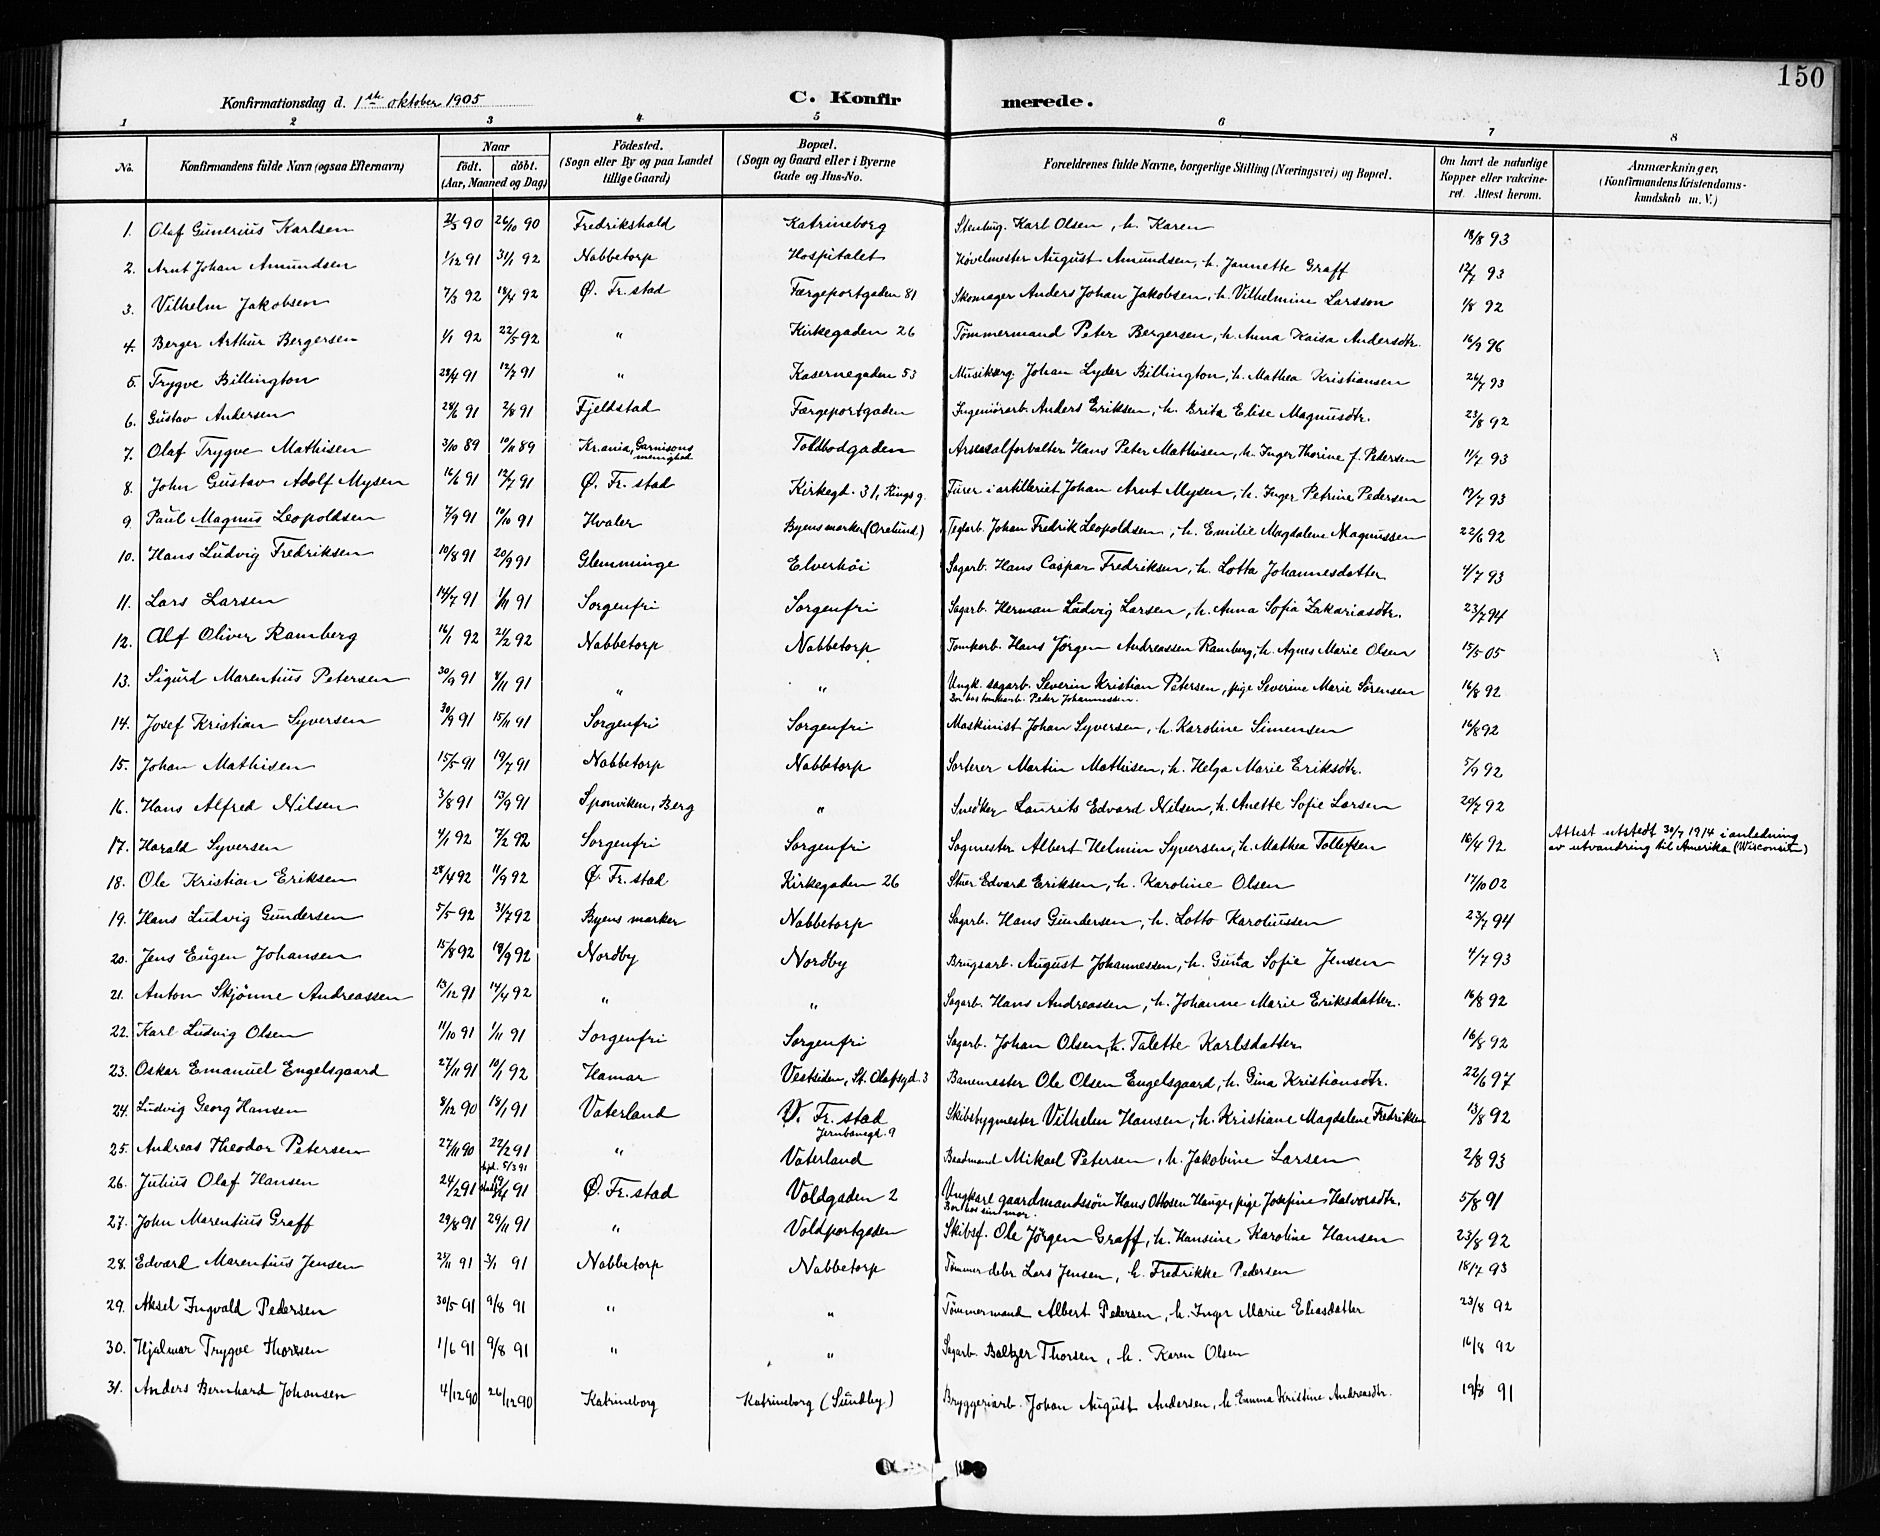 150
Konfirmationsdag d. 1ste oktober 1905 C. Konfir merede.
1 2 3 4 5 6 7 8
No. Konfirmandens fulde Navn (ogsaa Efternavn) Naar födt. döbt. (Aar, Maaned og Dag) Födested. (Sogn eller By og paa Landet tillige Gaard) Bopæl. (Sogn og Gaard eller i Byerne Gade og Hus-No. Forældrenes fulde Navne, borgerlige Stilling (Næringsvei) og Bopæl. Om havt de naturlige Kopper eller vakcineret. Attest herom. Anmærkninger. (Konfirmandens Kristendomskundskab m. V.)
1. Olaf Gunerius Karlsen 90 26/10 90 Fredrikshald Katrineborg Stenhug. Karl Olsen, h. Karen 18/8 93
2. Arnt Johan Amundsen 1/12 91 31/1 92 Nabbetorp Hospitalet Hövelmester August Amundsen, h. Jannette Graff 12/7 93
3. Vilhelm Jakobsen 7/3 92 18/4 92 Ø. Fr.stad Færgeportgaden 81 Skomager Anders Johan Jakobsen, h. Vilhelmine Larsson 1/8 92
4. Berger Arthur Bergersen 1/1 92 22/5 92 " Kirkegaden 26 Tømmermand Peter Bergersen, h. Anna Kaisa Andersdtr. 16/9 96
5. Trygve Billington 28/4 91 12/7 91 " Kasernegaden 53 Musikserg. Johan Lyder Billington, h. Mathea Kristiansen 26/7 93
6. Gustav Andersen 28/6 91 2/8 91 Fjeldstad Færgeportgaden Ingeniörarb. Anders Eriksen, h. Brita Elise Magnusdtr. 23/8 92
7. Olaf Trygve Mathisen 3/10 89 10/11 89 Krania, Garnisons menighed Toldbodgaden Arsenalforvalter Hans Peter Mathisen, h. Inger Thorine f. Petersen 11/7 93
8. John Gustav Adolf Mysen 16/6 91 12/7 91 Ø. Fr. stad Kirkegd. 31, Rings g. Furer i artilleriet Johan Arnt Mysen, h. Inger Petrine Pedersen 12/7 93
9. Paul Magnus Leopoldsen 7/9 91 10/10 91 Hvaler Byens marker (Orelund) Teglarb. Johan Fredrik Leopoldsen, h. Emilie Magdalene Magnussen 22/6 92
10. Hans Ludvig Fredriksen 10/8 91 20/9 91 Glemminge Elverhöi Sagarb. Hans Caspar Fredriksen, h. Lotta Johannesdatter 4/7 93
11. Lars Larsen 14/7 91 1/11 91 Sorgenfri Sorgenfri Sagarb. Herman Ludvig Larsen, h. Anna Sofia Zakariasdtr. 23/7 94
12. Alf Oliver Ramberg 16/1 92 21/2 92 Nabbetorp Nabbetorp Tomtearb. Hans Jörgen Andreassen Ramberg, h. Agnes Marie Olsen 15/5 05
13. Sigurd Marentius Petersen 30/9 91 4/11 91 " " Ungk. sagarb. Severin Kristian Petersen, pige Severine Marie Sörensen 16/8 92
Bor hos tomtearb. Peter Johannessen.
14. Josef Kristian Syversen 30/9 91 15/11 91 Sorgenfri Sorgenfri Maskinist Johan Syversen, h. Karoline Simensen 16/8 92
15. Johan Mathisen 15/5 91 19/7 91 Nabbetorp Nabbetorp Sorterer Martin Mathisen, h. Helga Marie Eriksdtr. 5/9 92
16. Hans Alfred Nilsen 3/8 91 13/9 91 Sponviken, Berg " Snedker Laurits Edvard Nilsen, h. Anette Sofie Larsen 20/7 92
17. Harald Syversen 4/1 92 7/2 92 Sorgenfri Sorgenfri Sagmester Albert Helmin Syversen, h. Mathea Tollefsen 16/4 92 Attest utstedt 30/7 1914 i anledning
av utvandring til Amerika (Wisconsin)
18. Ole Kristian Eriksen 28/4 92 11/9 92 Ø. Fr. stad Kirkegaden 26 Stuer Edvard Eriksen, h. Karoline Olsen 17/10 02
19. Hans Ludvig Gundersen 5/5 92 31/7 92 Byens marker Nabbetorp Sagarb. Hans Gundersen, h. Lotto Karoliussen 23/7 94
20. Jens Eugen Johansen 15/8 92 18/9 92 Nordby Nordby Brugsarb. August Johannessen, h. Guna Sofie Jensen 4/7 93
21. Anton Skjönne Andreassen 13/12 91 14/4 92 " " Sagarb. Hans Andreassen, h. Johanne Marie Eriksdatter. 16/8 92
22. Karl Ludvig Olsen 11/10 91 1/11 91 Sorgenfri Sorgenfri Sagarb. Johan Olsen, h. Talette Karlsdatter 16/8 92
23. Oskar Emanuel Engelsgaard 27/11 91 10/1 92 Hamar Vestsiden, St. Olafsgd. 3 Banemester Ole Olsen Engelsgaard, h. Gina Kristiansdtr. 22/6 97
24. Ludvig Georg Hansen 8/12 90 18/1 91 Vaterland Ø. Fr. stad Skibsbygmester Vilhelm Hansen, h. Kristiane Magdalene Fredriksen 13/8 92
Jernbanegd. 9
25. Andreas Theodor Petersen 27/11 90 22/2 91 " Vaterland Baadmand Mikael Petersen, h. Jakobine Larsen 2/8 93
hjd. 5/3 91
26. Julius Olaf Hansen 24/2 91 91 Ø. Fr. stad Voldgaden 2 Ungkarl gaardmandssön Hans Ottosen Hauge, pige Josefine Halvorsdtr. 5/8 91
Bor hos sin mor.
27. John Marentius Graff 29/8 91 29/11 91 " Voldportgaden Skibsf. Ole Jörgen Graff, h. Hansine Karoline Hansen 23/8 92
28. Edvard Marentius Jensen 91 91 Nabbetorp Nabbetorp Tömmer deler Lars Jensen, h. Fredrikke Pedersen 18/7 93
29. Aksel Ingvald Pedersen 30/5 91 9/8 91 " " Tömmermand Albert Pedersen, h. Inger Marie Eliasdatter 23/8 92
30. Hjalmar Trygve Thorsen 1/6 91 9/8 91 " " Sagarb. Baltzer Thorsen, h. Karen Olsen 16/8 92
31. Anders Bernhard Johansen 4/12 90 26/12 90 Katrineborg Katrineborg (Sundby) Bryggeriarb. Johan August Andersen, h. Emma Kristine Andreasdtr. 19/8 91